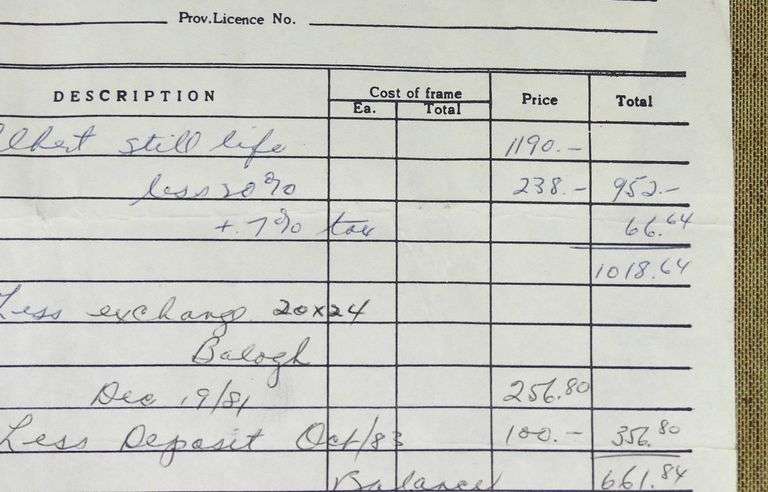 Prov.Licence No.
DESCRIPTION Cost of frame Price Total
Ea. Total
still life 1190.-
less 20% 238.- 952.-
+ 7% tax 66.64
1018.64
Less exchange 20x24
Balogh
Dec 19/81 256.80
Less Deposit Oct/83 100.- 356.80
Balance 661.84